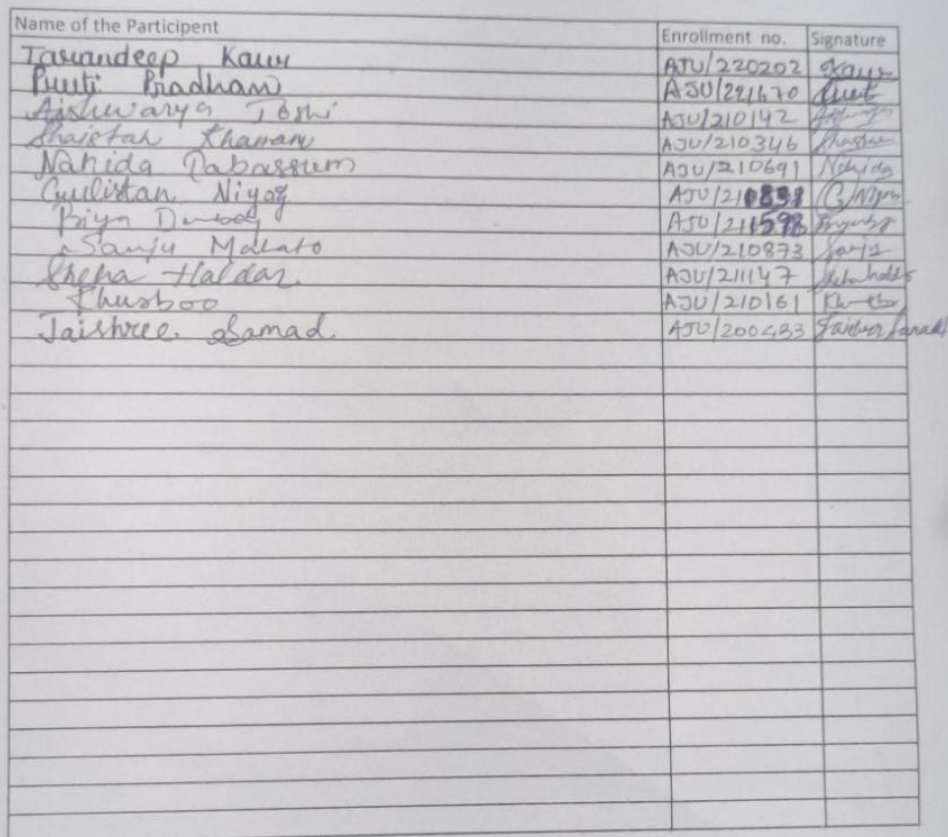 Name of the Participent Enrollment no. Signature
Tarrandeep Kaur AJU/220202 Kaur
Priti Pradhan AJU/221670
Aishwarya Joshi AJU/210142
Shaistah Khanam AJU/210346
Nahida Tabassum AJU/210691 Nahida
Gulistan Niyaz AJU/210838 G. Niyaz
Priya AJU/211598
Sanju Mahato AJU/210873 Sanju
Sneha Haldar. AJU/211147
Khusboo AJU/210161
Jaishree Samad. AJU/200433 Jaishree Samad